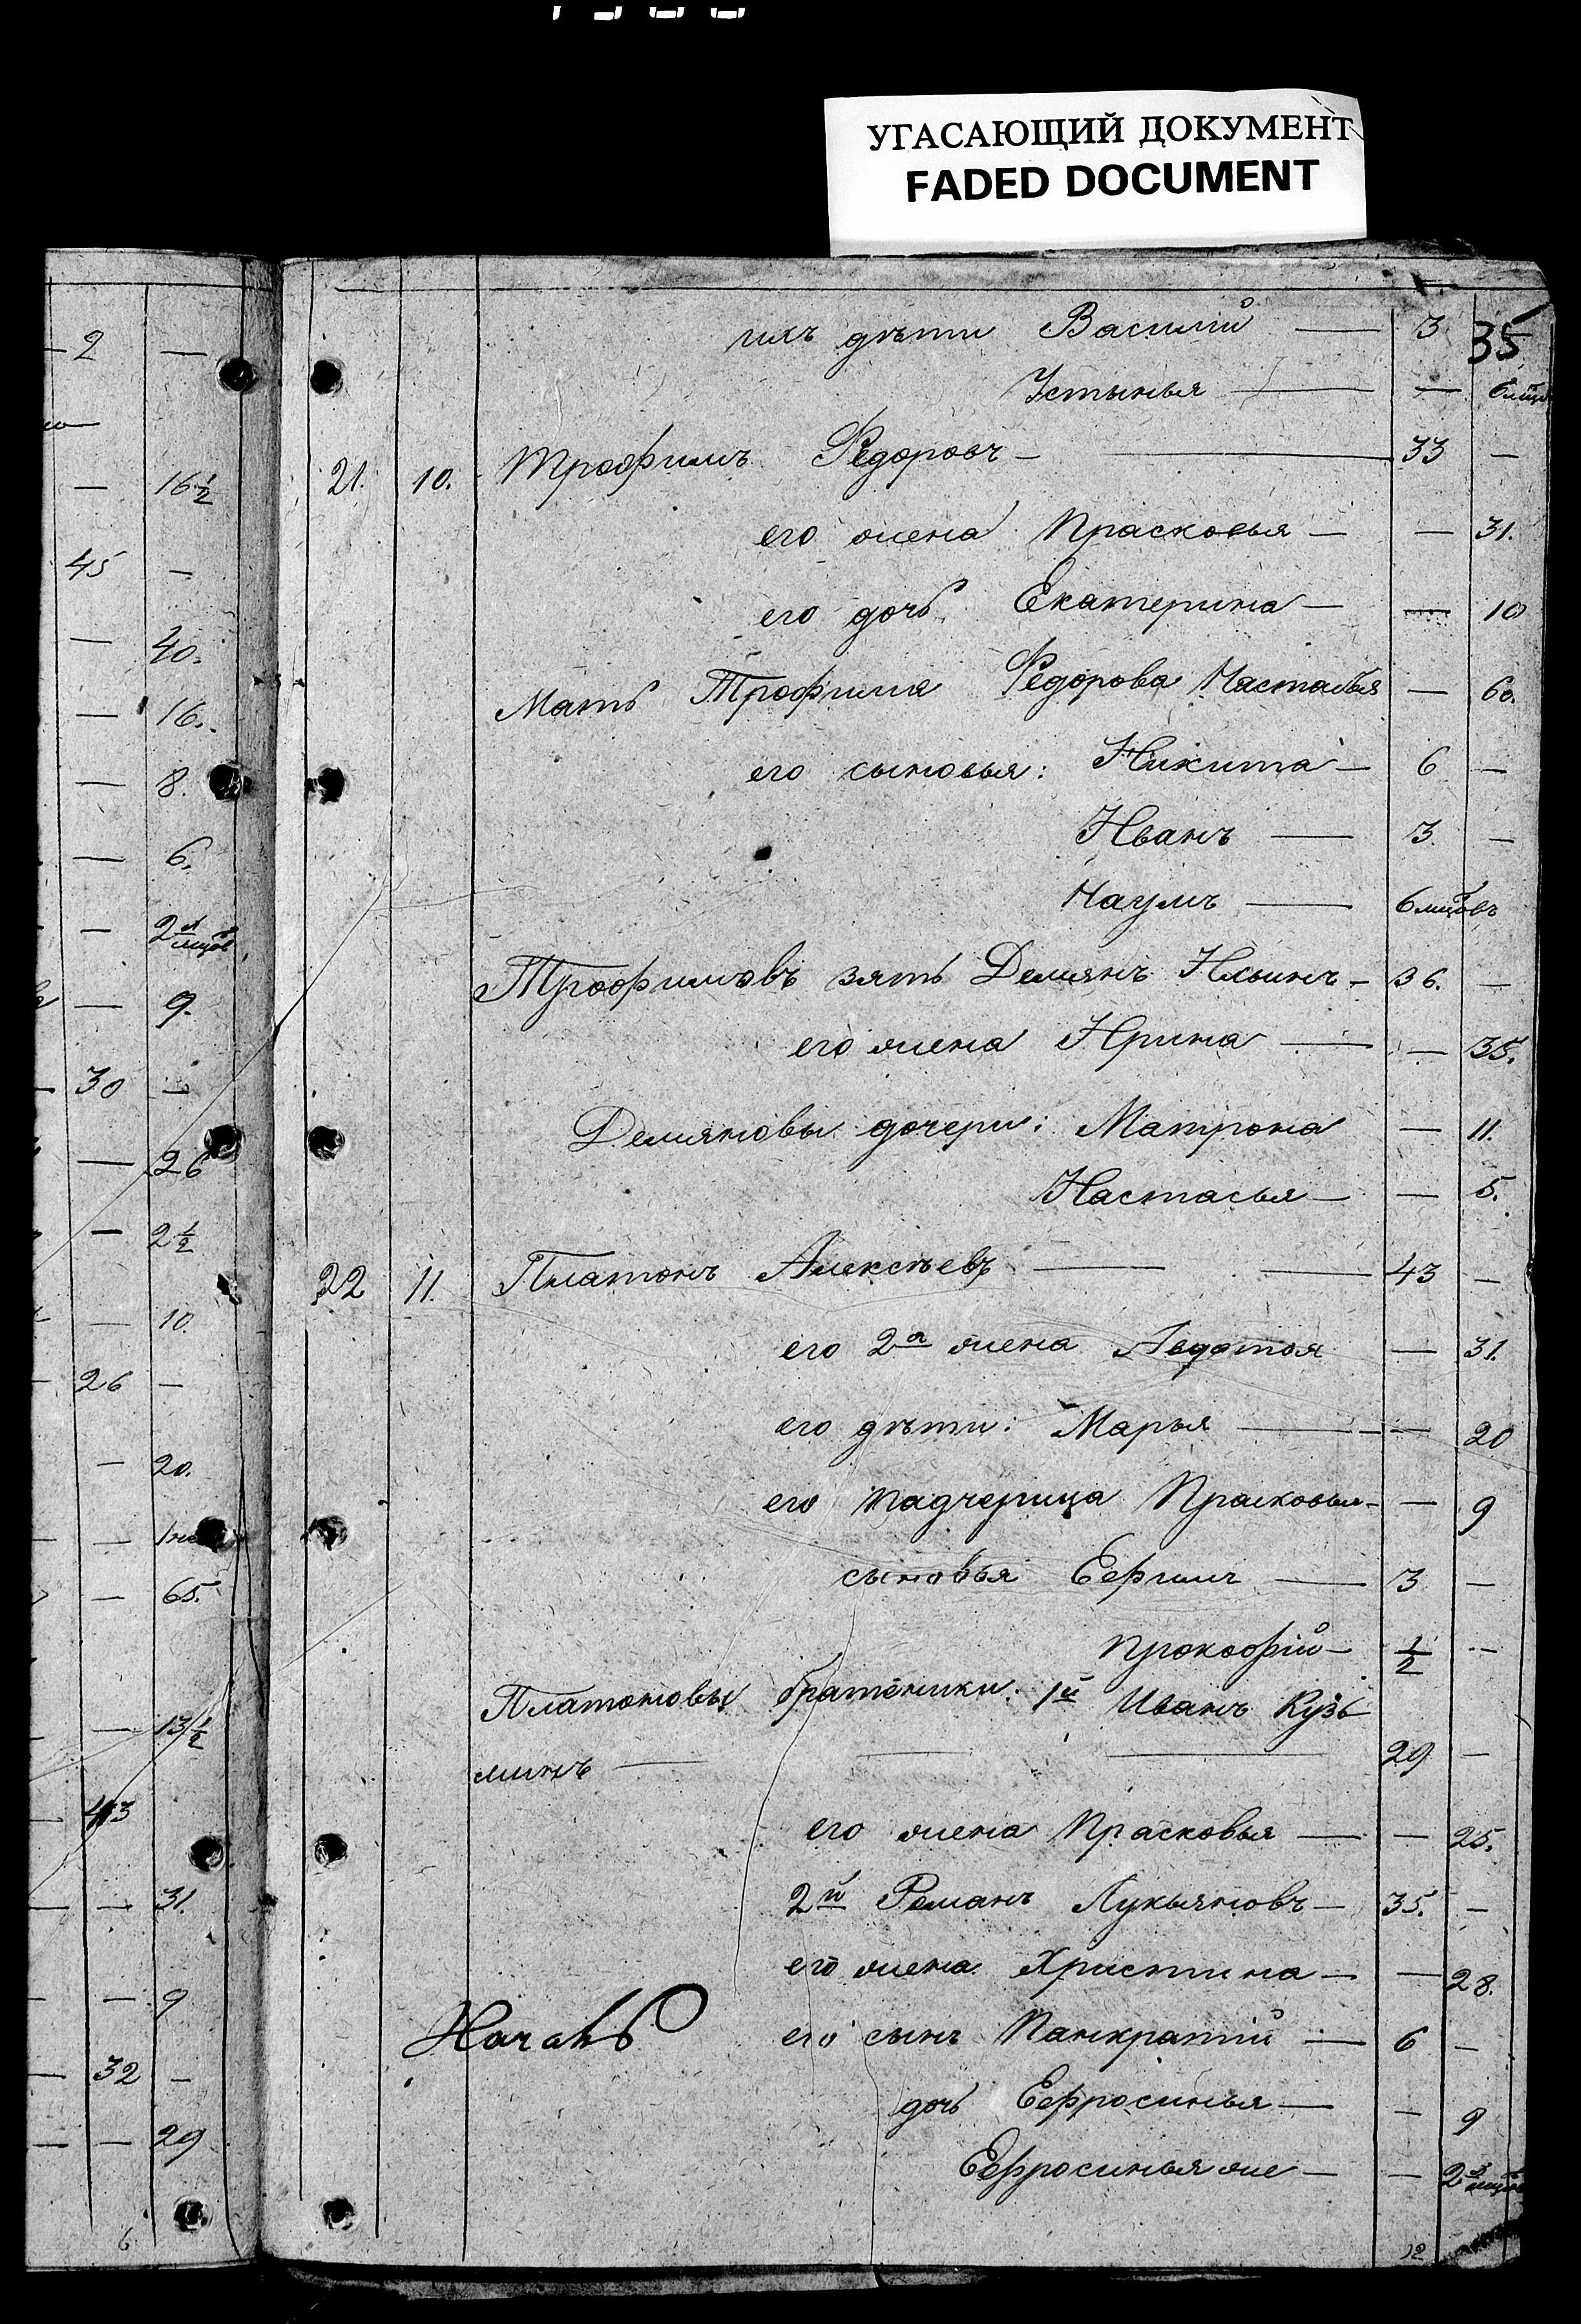 УГАСАЮЩИЙ ДОКУМЕНТ
FADED DOCUMENT
35
ихъ дѣти Василiй — 3
Устинья — — 6 мцовъ
21. 10. Трофимъ Ѳедоровъ — 33 —
его жена Прасковья — — 31.
его дочь Екатерина — — 10
Мать Трофима Ѳедорова Настасья — 60.
его сыновья: Никита — 6 —
Иванъ — 3 —
Наумъ — 6 мцовъ
Трофимовъ зять Демянъ Ильинъ — 36. —
его жена Ирина — — 35.
Демяновы дочери: Матрона — 11.
Настасья — — 5.
22 11. Платонъ Алексѣевъ — 43 —
его 2я жена Авдотья — 31.
его дѣти: Марья — — 20
его падчерица Прасковья — — 9
сыновья Ефимъ — 3 —
Прокофiй — 1/2 —
Платоновы братеники: 1й Иванъ Кузь
минъ — 29 —
его жена Прасковья — — 25.
2й Романъ Лукьяновъ — 35. —
его жена Христина — — 28.
его сынъ Панкратiй — 6 —
дочь Ефросинья — — 9
Ефросинья же — — 2 мцовъ
12
2 —
— 16 1/2
45 —
— 40.
— 16.
— 8.
— 6.
— 2 мцов
— 9.
30 —
— 26
— 2 1/2
— 10.
26 —
— 20.
— 65.
— 13 1/2
43
— 31.
— 9
32 —
— 29